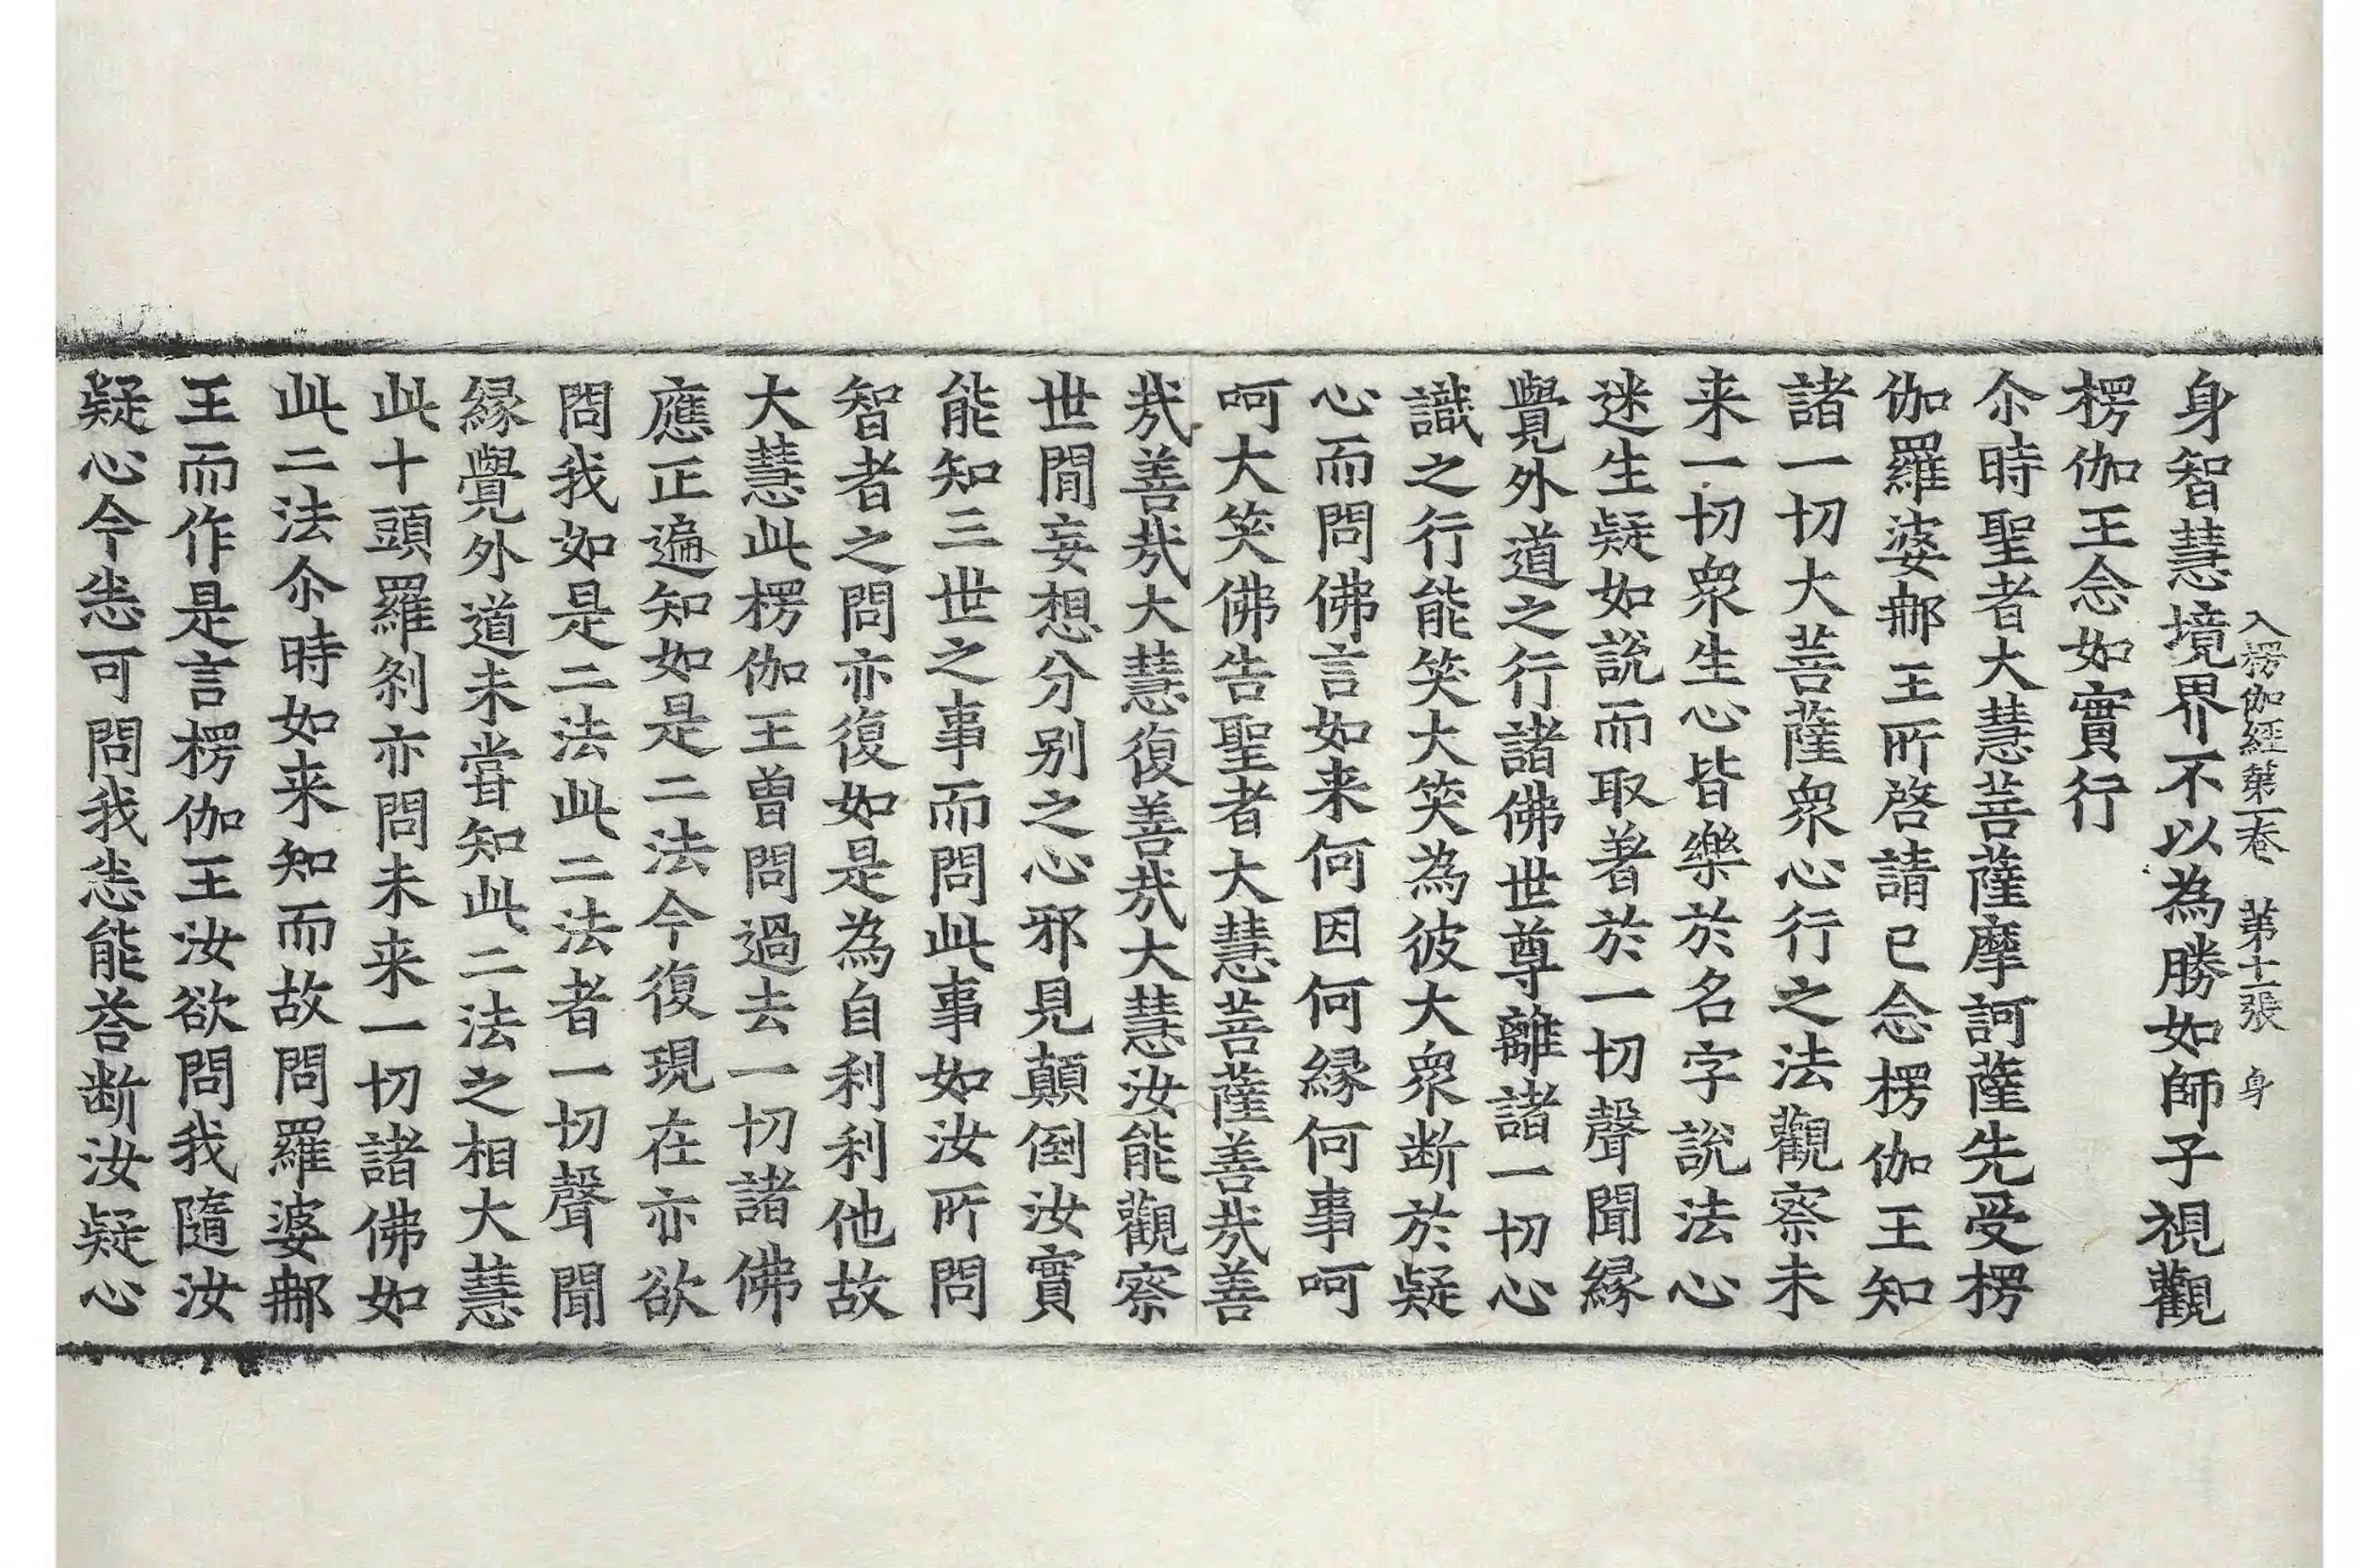 入楞伽經第一卷 第十二張 身
身智慧境界不以為勝如師子視觀
楞伽王念如實行
尒時聖者大慧菩薩摩訶薩先受楞
伽羅婆那王所啓請已念楞伽王知
諸一切大菩薩衆心行之法觀察未
来一切衆生心皆樂於名字說法心
迷生疑如說而取著於一切聲聞緣
覺外道之行諸佛世尊離諸一切心
識之行能笑大笑為彼大衆断於疑
心而問佛言如来何因何縁何事呵
呵大笑佛告聖者大慧菩薩善㢤善
㢤善㢤大慧復善㢤大慧汝能觀察
世間妄想分别之心邪見顛倒汝實
能知三世之事而問此事如汝所問
智者之問亦復如是為自利利他故
大慧此楞伽王曾問過去一切諸佛
應正遍知如是二法今復現在亦欲
問我如是二法此二法者一切聲聞
緣覺外道未嘗知此二法之相大慧
此十頭羅刹亦問未来一切諸佛如
此二法尒時如来知而故問羅婆那
王而作是言楞伽王汝欲問我隨汝
疑心今悉可問我悉能荅断汝疑心